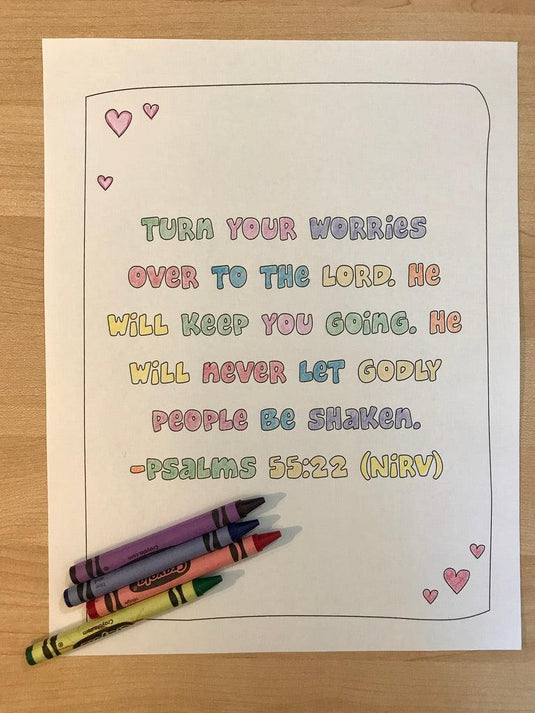 Turn your worries
over to the Lord. He
will keep you going. He
will never let godly
people be shaken.
-Psalms 55:22 (NIRV)
Crayola